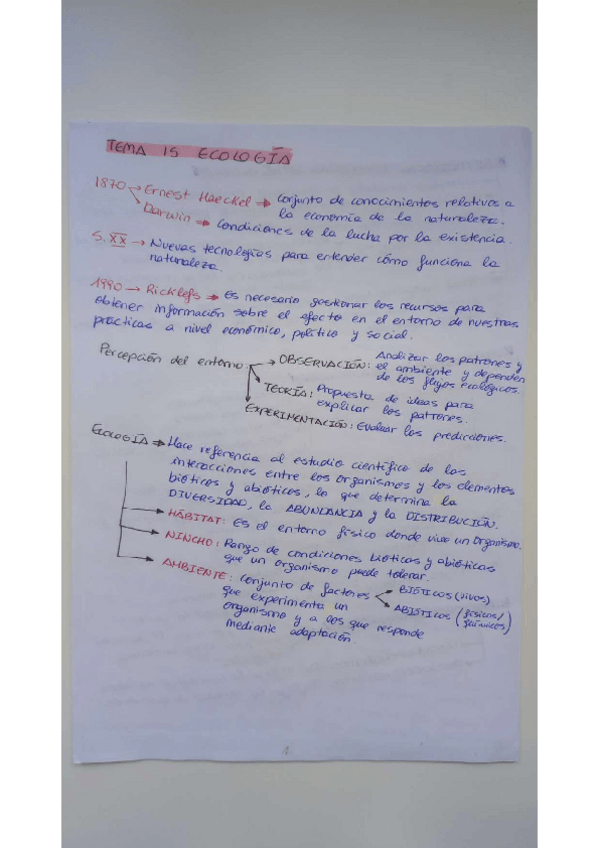 TEMA 15 ECOLOGÍA
1870 → Ernest Haeckel → Conjunto de conocimientos relativos a
la economía de la naturaleza.
Darwin → Condiciones de la lucha por la existencia.
S. XX → Nuevas tecnologías para entender cómo funciona la
naturaleza.
1990 → Ricklefs → Es necesario gestionar los recursos para
obtener información sobre el efecto en el entorno de nuestras
prácticas a nivel económico, político y social.
Percepción del entorno → OBSERVACIÓN: Analizar los patrones y
el ambiente y dependen
de los flujos ecológicos.
TEORÍA: Propuesta de ideas para
explicar los patrones.
EXPERIMENTACIÓN: Evaluar las predicciones.
ECOLOGÍA → Hace referencia al estudio científico de las
interacciones entre los organismos y los elementos
bióticos y abióticos, lo que determina la
DIVERSIDAD, la ABUNDANCIA y la DISTRIBUCIÓN.
HÁBITAT: Es el entorno físico donde vive un organismo.
NINCHO: Rango de condiciones bióticas y abióticas
que un organismo puede tolerar.
AMBIENTE: Conjunto de factores < BIÓTICOS (vivos)
ABIÓTICOS (físicos/químicos)
que experimenta un
organismo y a los que responde
mediante adaptación.
1